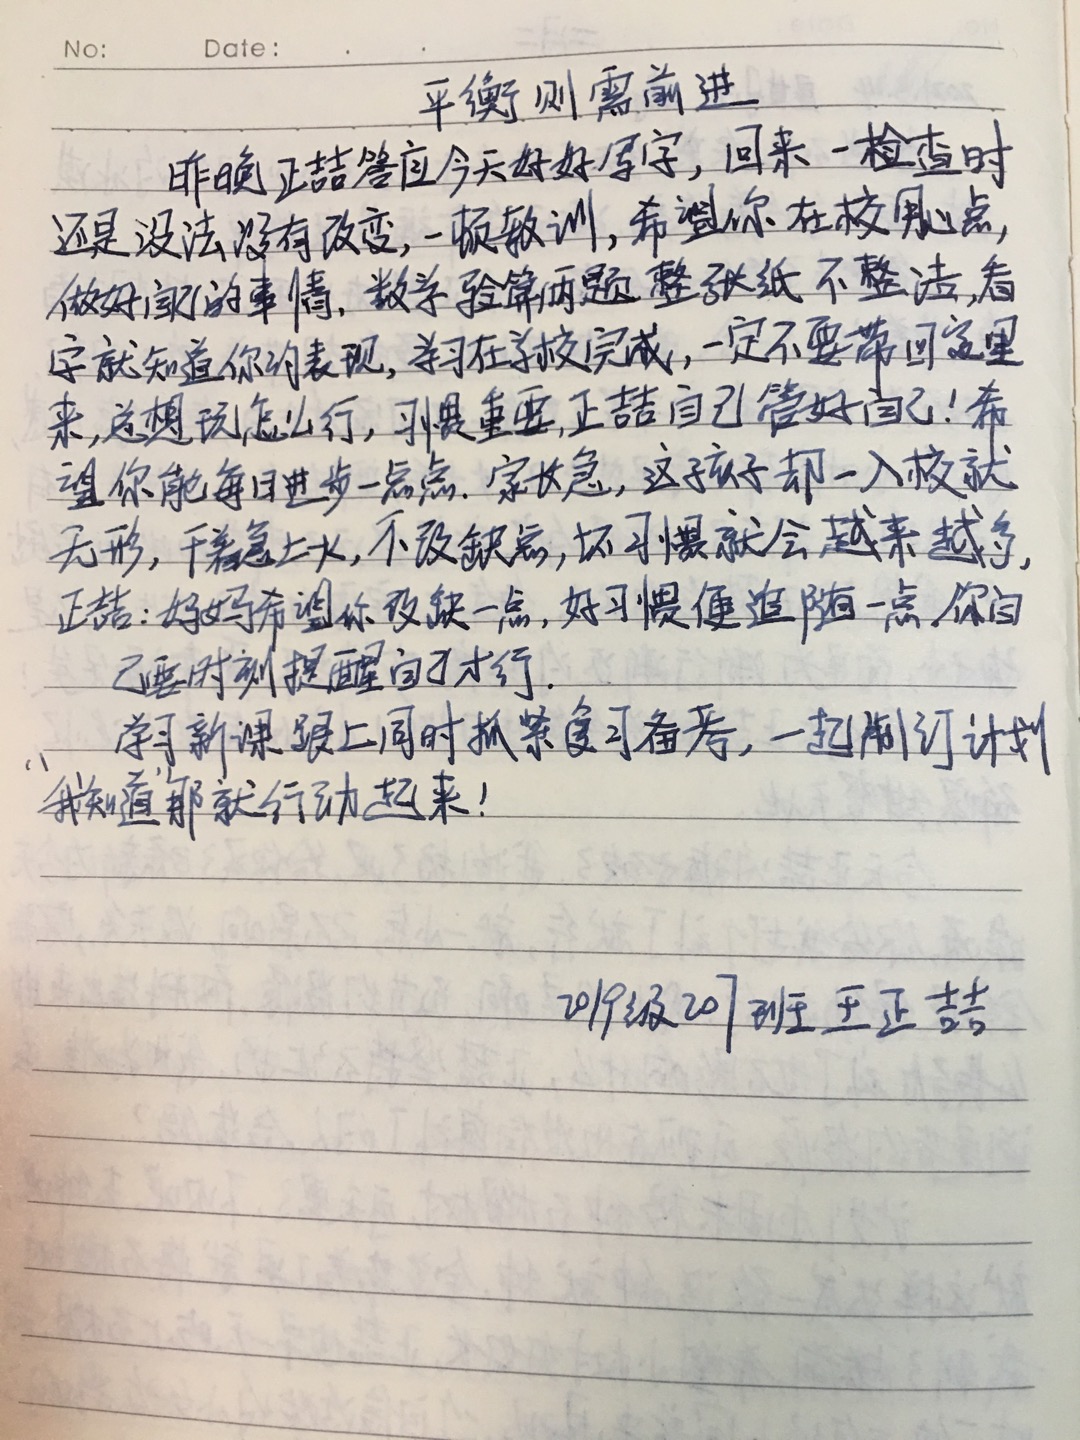 No: Date:
平衡则需前进
昨晚正喆答应今天好好写字，回来一检查时
还是没法没有改变，一顿教训，希望你在校用心点，
做好自己的事情。数学验算两题整张纸不整洁，看
字就知道你的表现，学习在学校完成，一定不要带回家里
来，总想玩怎么行，习惯重要，正喆自己管好自己！希
望你能每日进步一点点。家长急，这孩子却一入校就
无形，干着急上火，不改缺点，坏习惯就会越来越多，
正喆：妈妈希望你改缺一点，好习惯便追随一点。你自
己要时刻提醒自己才行.
学习新课跟上同时抓紧复习备考，一起制订计划
“我知道”那就行动起来！
2019级207班王正喆